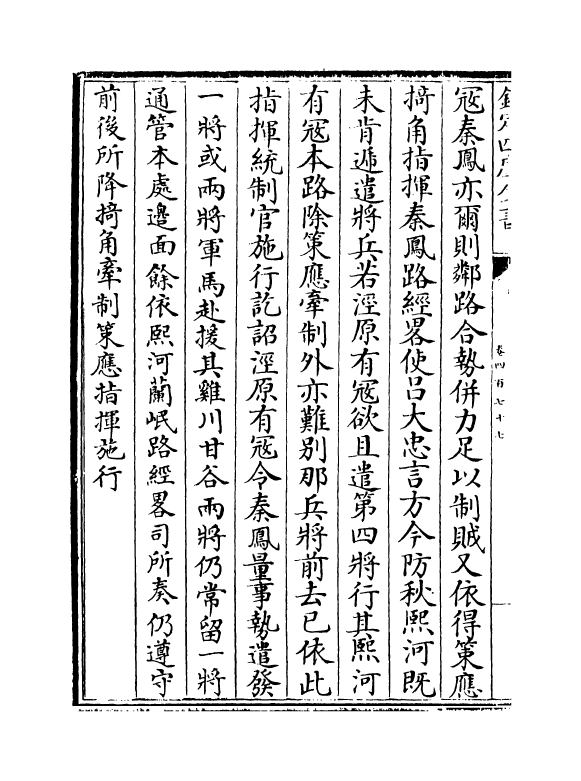 欽定四庫全書
卷四百七十七
寇秦鳳亦爾則鄰路合勢併力足以制賊又依得策應
掎角指揮秦鳳路經畧使吕大忠言方今防秋熙河既
未肯遞遣將兵若涇原有寇欲且遣第四將行其熙河
有寇本路除策應牽制外亦難别那兵將前去已依此
指揮統制官施行訖詔涇原有寇令秦鳳量事埶遣發
一將或兩將軍馬赴援其雞川甘谷兩將仍常留一將
通管本處邊面餘依熙河蘭岷路經畧司所奏仍遵守
前後所降掎角牽制策應指揮施行